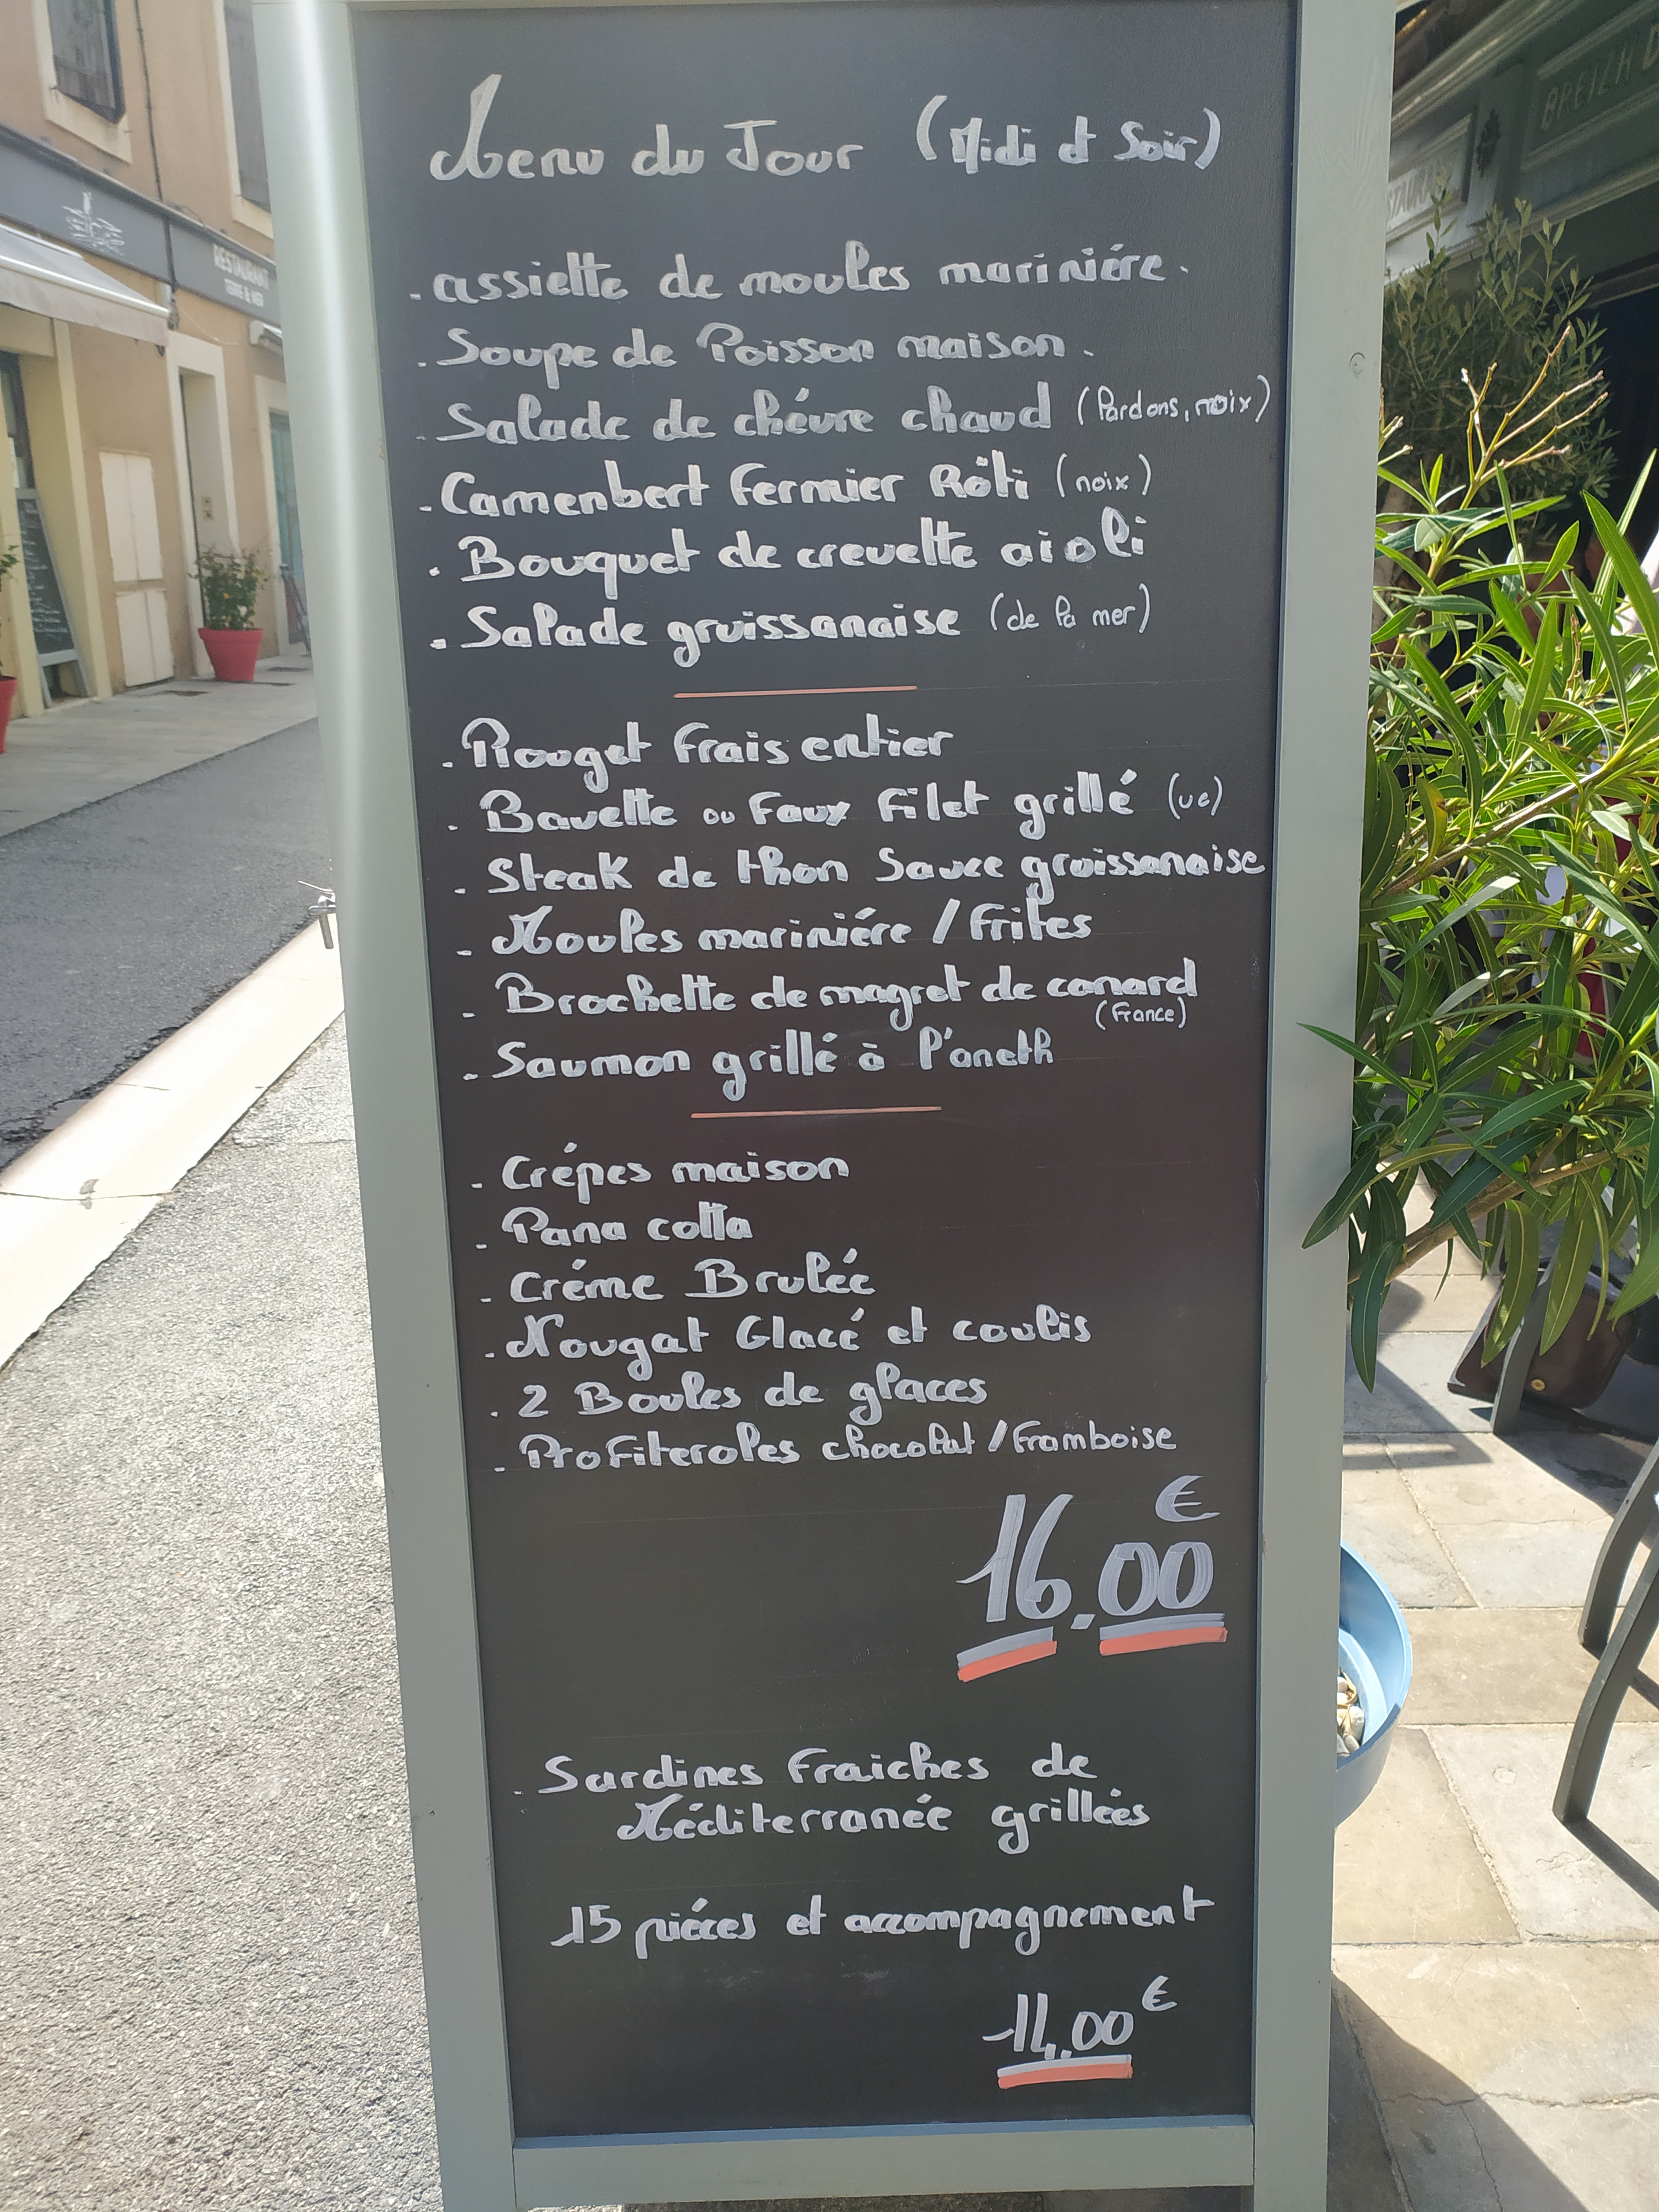 RESTAURANT
TERRE & MER
Menu du Jour (Midi et Soir)
. assiette de moules mariniére.
. Soupe de Poisson maison.
- Salade de chévre chaud (lardons, noix)
. Camenbert Fermier Rôti (noix)
. Bouquet de crevette aioli
. Salade gruissanaise (de la mer)
. Rouget Frais entier
. Bavette ou Faux Filet grillé (ue)
. Steak de thon Sauce gruissanaise
- Moules mariniére / Frites
- Brochette de magret de canard
(France)
. Saumon grillé à l'aneth
- Crépes maison
- Pana cotta
- Créme Brulée
. Nougat Glacé et coulis
. 2 Boules de glaces
- Profiteroles chocolat / Framboise
16.00 €
. Sardines Fraiches de
Méditerranée grillées
15 piéces et accompagnement
11,00 €
BREIZH